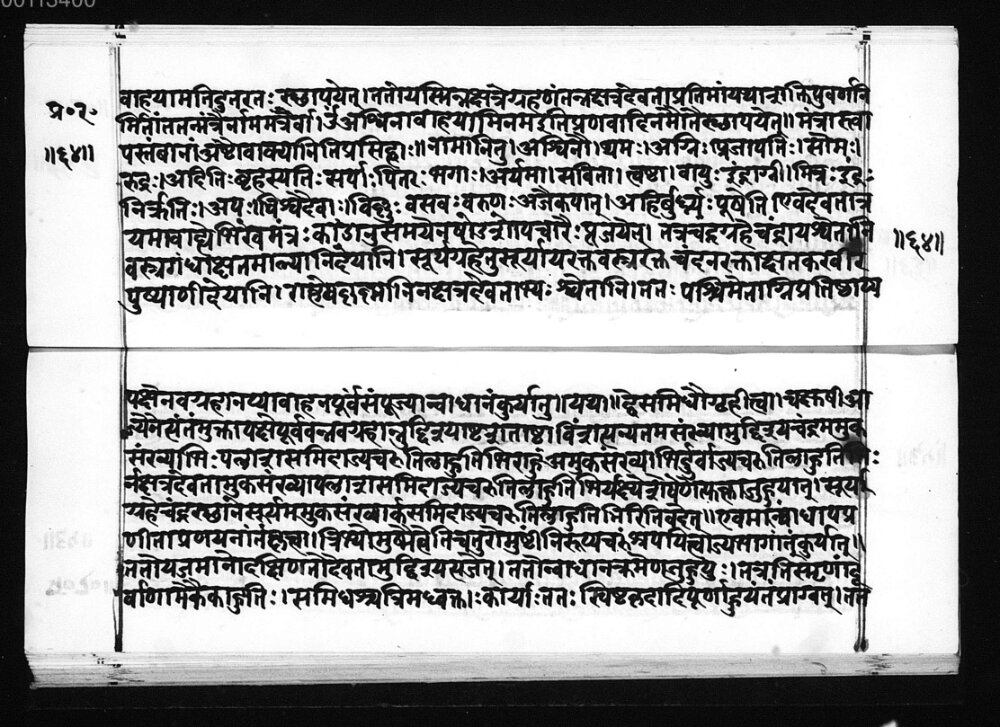 00113400
प्र०२.
वाहयामनिदुतरतः स्थापयेत्। ततोयस्मिन्नक्षत्रेग्रहणंतन्नक्षत्रदेवताप्रतिमांययाशक्तिसुवर्णनि
र्मितांततन्मंत्रैर्वाममत्रैर्वा। उंअश्विनावाहयामिनमइतिप्रणवादिनमोंतिस्थापयेत्॥मंत्रास्त्वा
॥६४॥
पस्तंबानांअष्टौवाक्यानितिप्रसिद्धाः॥नामानितु। अश्विनौ। यमः। अग्निः। प्रजापतिः। सोमः।
रुद्रः। अदितिः। बृहस्पतिः। सर्पाः। पितरः। भगः। अर्यमा। सविता। त्वष्टा। वायुः। इंद्राग्नी। मित्रः। इंद्रः
निर्ऋतिः। आपः। विश्वेदेवाः। विष्णुः। वसवः। वरुणः। अजैकपात्। अहिर्बुध्न्यः। पूषेति। एवंदेवतामत्र
यमावाह्य कांडानुसमयेनषोडशोपचारैः पूजयेत्। तत्रचंद्रग्रहेचंद्रायश्वेतानि
॥६४॥
वस्त्रगंधाक्षतमाल्यानिदेयानि। सूर्यग्रहेतुसूर्यायरक्तवस्त्ररक्तचंदनरक्ताक्षतकरवीर
पुष्पाणीदेयानि। नक्षत्रदेवताभ्यः श्वेतानि। ततः पश्चिमेनाग्निंप्रतिष्ठाप्य
पक्षेनवग्रहानप्यावाहनपूर्वंसंपूज्यान्वाधानंकुर्यात्॥यथा॥द्वेसमिधौगृहीत्वा। चक्षुषीआ
ज्येनेत्यंतमुक्त्वापक्षेपूर्ववन्नवग्रहानुद्दिश्याष्टशताष्टाविंशत्यन्यतमसंख्यामुद्दिश्यचंद्रममुक
संख्याभिः पलाशसमिदाज्यचरुतिलाहुतिभिराहुं अमुकसंख्याभिर्दूर्वाज्यचरुतिलाहुतिभिः
नक्षत्रदेवतामुकसंख्यापलाशसमिदाज्यचरुतिलाहुतिभिर्यक्ष्ये शेषेणेत्युक्त्वाजुहुयात्। सूर्य
ग्रहेचंद्रस्थानेसूर्यममुकसंख्यार्कसमिदाज्यचरुतिलाहुतिभिरितिवदेत्॥एवमन्वाधायप्र
णीताप्रणयनांतंकृत्वा। चतुरोमुष्टीनिरूप्यचरुंश्रपयित्वाज्यभागांतंकुर्यात्॥
ततोयजमानोदक्षिणतोदेवतामुद्दिश्यसृजेत्। ततोन्वाधानक्रमेणजुहुयुः।
र्वाणामेकैकाहुतिः। समिधश्चत्रिमध्वक्ताः कार्याः। ततः स्विष्टकृदादिपूर्णाहुत्यंतंप्राग्वत्। ततो